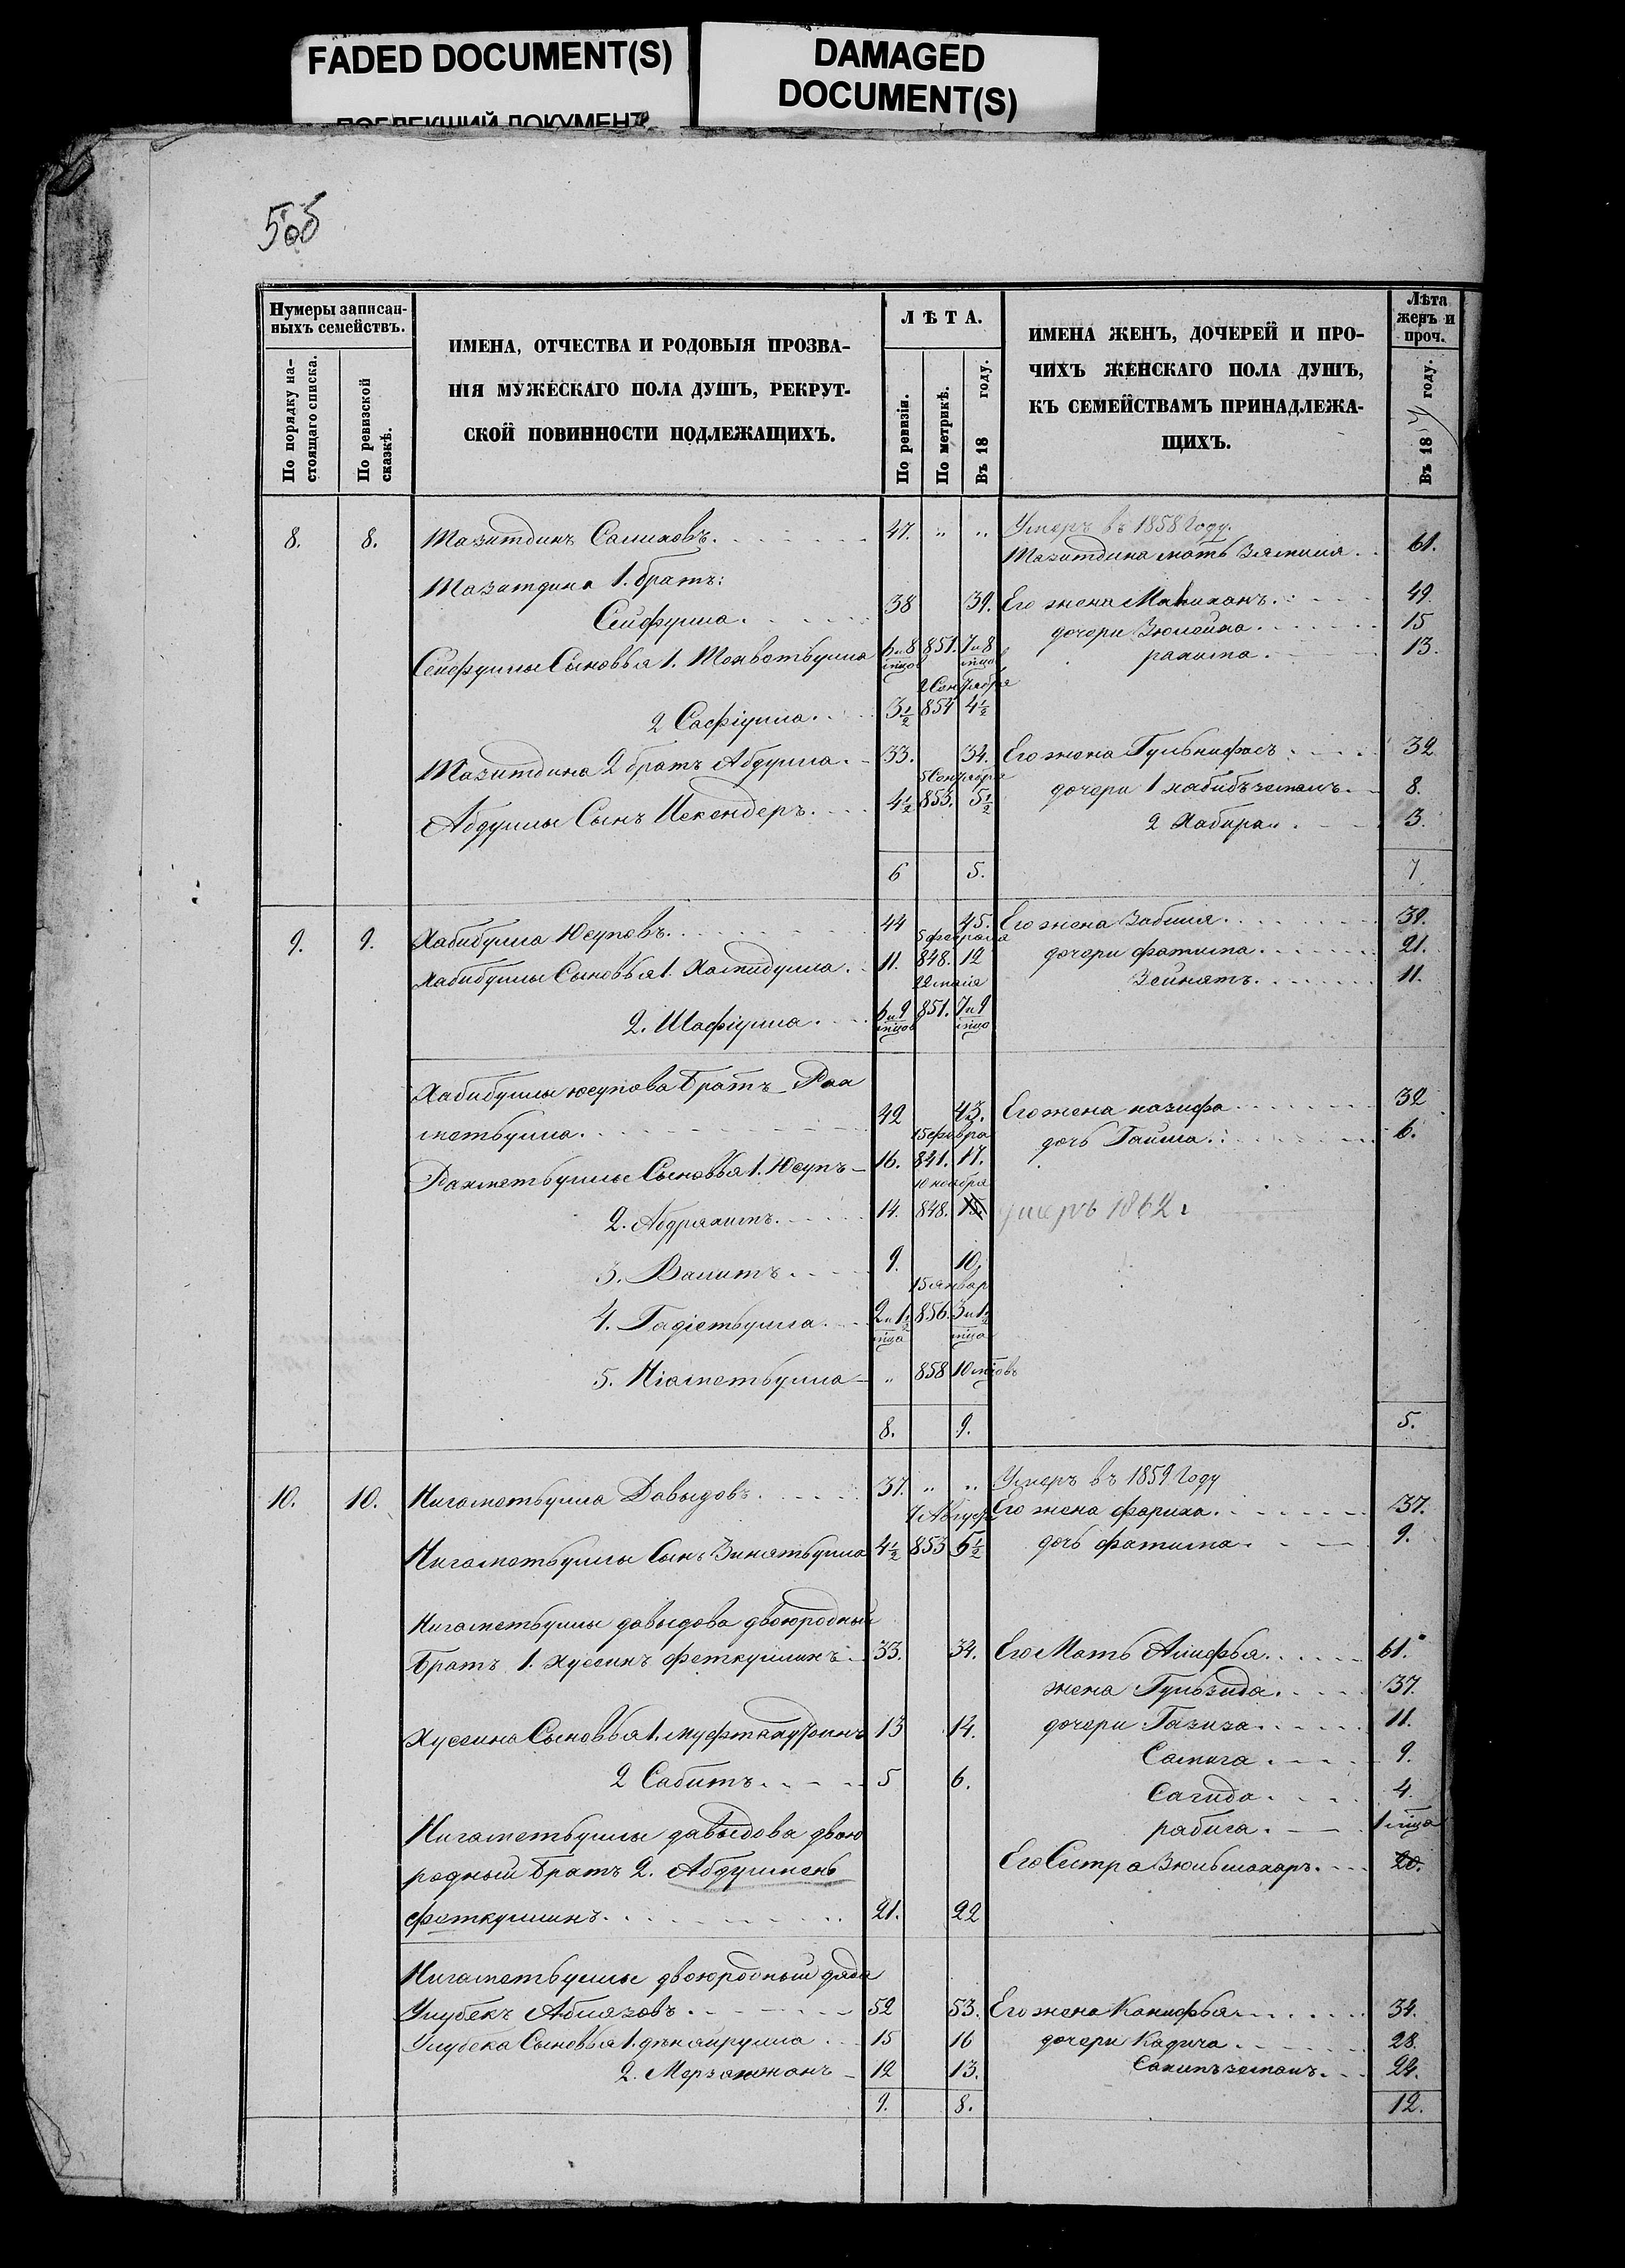 FADED DOCUMENT(S)
ПОБЛЕКШИЙ ДОКУМЕНТ
DAMAGED
DOCUMENT(S)
Нумеры записан-
ныхъ семействъ.
По порядку на-
стоящаго списка.
По ревизской
сказкѣ.
ИМЕНА, ОТЧЕСТВА И РОДОВЫЯ ПРОЗВА-
НІЯ МУЖЕСКАГО ПОЛА ДУШЪ, РЕКРУТ-
СКОЙ ПОВИННОСТИ ПОДЛЕЖАЩИХЪ.
ЛѢТА.
По ревизіи.
По метрикѣ.
Въ 18 году.
ИМЕНА ЖЕНЪ, ДОЧЕРЕЙ И ПРО-
ЧИХЪ ЖЕНСКАГО ПОЛА ДУШЪ,
КЪ СЕМЕЙСТВАМЪ ПРИНАДЛЕЖА-
ЩИХЪ.
Лѣта
женъ и
проч.
Въ 18 году.
8. 8. Мазитдинъ Салиховъ. 47. " " Умеръ въ 1858 году.
Мазитдина мать 61.
Мазитдина 1. братъ:
Сейфулла. 38 39. Его жена 49
дочери 15
Сейфуллы Сыновья 1. 6 и 8 мцов 851. 7 и 8 мцов рахима. 13.
2 Сафіулла. 3 1/2 854 4 1/2
Мазитдина 2 братъ Абдулла. 33. 34. Его жена Гульнифасъ. 32
5 Сентября
Абдуллы Сынъ Искендеръ. 4 1/2 853. 5 1/2 дочери 1 хабибъземалъ. 8.
2 Хабира. 3.
6 5. 7
9. 9. Хабибулла Юсуповъ. 44 45. Его жена Забиля. 39.
5 февраля
Хабибуллы Сыновья 1. Хамидулла. 11. 848. 12 дочери фатима. 21.
22 маія Зейнятъ. 11.
2. Шафіулла. 6 и 9 мцов 851. 7 и 9 мцо
Хабибуллы юсупова братъ Рах
метбулла. 42 43. Его жена назифа. 32
15 февра дочь 6.
Рахметбуллы Сыновья 1. Юсупъ 16. 841. 17.
10 ноября
2. Абдрахимъ. 14. 848. 15. умеръ 1862 г
3. Валитъ. 9. 10.
15 январ
4. Гадіетбулла. 2 и 1 1/2 мца 856. 3 и 1 1/2 мца
5. Ніаметбулла " 858 10 мцовъ
8. 9. 5.
10. 10. Нигаметбулла Давыдовъ. 37. " " Умеръ въ 1859 году
Его жена фариха. 37.
Нигаметбуллы Сынъ Зинятбулла 4 1/2 853 5 1/2 дочь фатима. 9.
Нигаметбуллы давыдова двоюродный
братъ 1. хусеинъ феткуллинъ. 33. 34. Его Мать 61.
жена Гульзида. 37.
Хусеина Сыновья 1. 13 14. дочери Газиза. 11.
Самига 9.
2 Сабитъ. 5 6. Сагида. 4.
Нигаметбуллы давыдова двою рабига. 1 мца
родный братъ 2. Абдулменъ Его Сестра 20.
феткуллинъ. 21. 22
Нигаметбуллы двоюродный дядя
Улубекъ Аблязовъ. 52 53. Его жена Канифья. 34.
Улубека Сыновья 1. 15 16 дочери Кадича. 28.
2. Мерзажанъ 12 13. Сахипъземалъ. 24.
9. 8. 12.